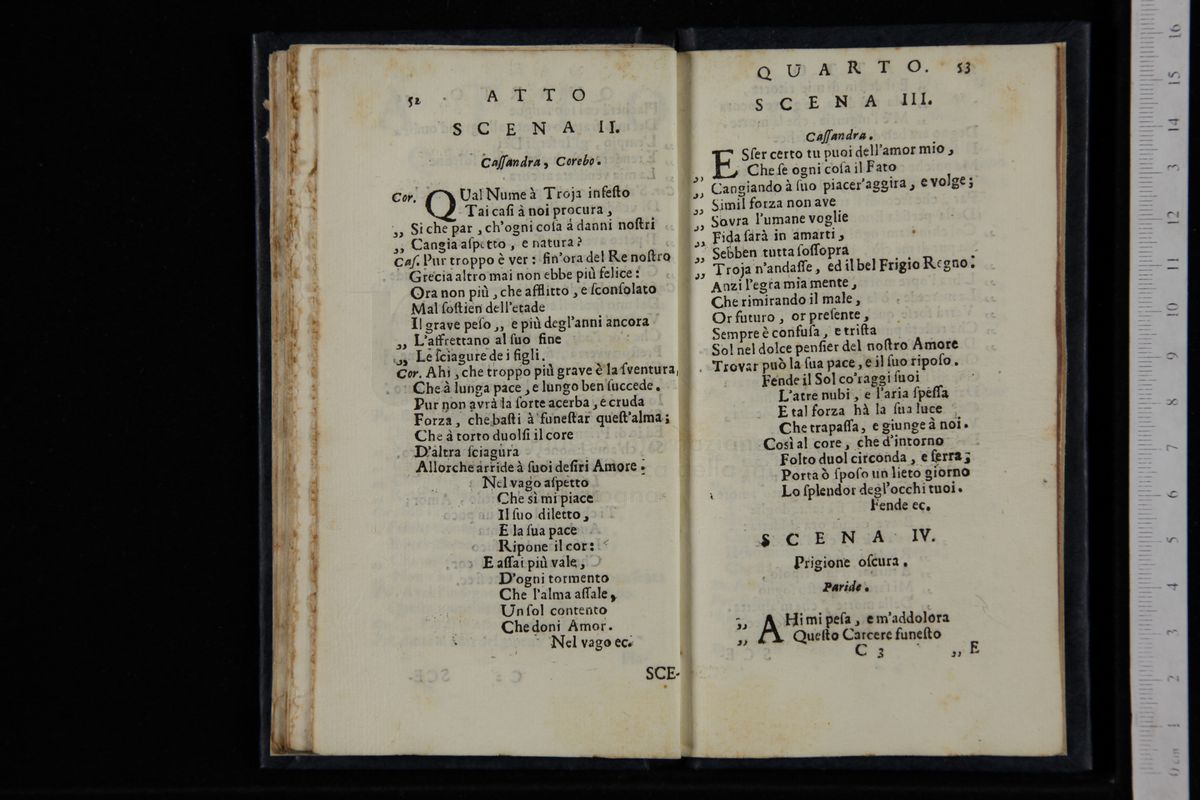 52 ATTO
SCENA II.
Caſſandra, Corebo.
Cor. QUal Nume à Troja infeſto
Tai caſi à noi procura,
,, Si che par, ch'ogni coſa á danni noſtri
,, Cangia aſpetto, e natura?
Caſ. Pur troppo è ver: ſin'ora del Re noſtro
Grecia altro mai non ebbe più felice:
Ora non più, che afflitto, e ſconſolato
Mal ſoſtien dell'etade
Il grave peſo,, e più degl'anni ancora
,, L'affrettano al ſuo fine
,, Le ſciagure de i figli.
Cor. Ahi, che troppo più grave è la ſventura,
Che à lunga pace, e lungo ben ſuccede.
Pur non avrà la ſorte acerba, e cruda
Forza, che baſti à funeſtar queſt'alma;
Che à torto duolſi il core
D'altra ſciagura
Allorche arride à ſuoi deſiri Amore:
Nel vago aſpetto
Che sì mi piace
Il ſuo diletto,
E la ſua pace
Ripone il cor:
E aſſai più vale,
D'ogni tormento
Che l'alma aſſale,
Un ſol contento
Che doni Amor.
Nel vago ec.
SCE-
QUARTO. 53
SCENA III.
Caſſandra.
ESſer certo tu puoi dell'amor mio,
,, Che ſe ogni coſa il Fato
,, Cangiando à ſuo piacer'aggira, e volge;
,, Simil forza non ave
,, Sovra l'umane voglie
,, Fida ſarà in amarti,
,, Sebben tutta ſoſſopra
,, Troja n'andaſſe, ed il bel Frigio Regno:
Anzi l'egra mia mente,
Che rimirando il male,
Or futuro, or preſente,
Sempre è confuſa, e triſta
Sol nel dolce penſier del noſtro Amore
Trovar può la ſua pace, e il ſuo ripoſo.
Fende il Sol co'raggi ſuoi
L'atre nubi, e l'aria ſpeſſa
E tal forza hà la ſua luce
Che trapaſſa, e giunge à noi.
Così al core, che d'intorno
Folto duol circonda, e ſerra;
Porta ò ſpoſo un lieto giorno
Lo ſplendor degl'occhi tuoi.
Fende ec.
SCENA IV.
Prigione oſcura.
Paride.
,, AHi mi peſa, e m'addolora
,, Queſto Carcere funeſto
C 3 ,, E